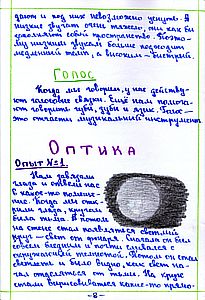 дают и под них невозможно уснуть. А
низкие звучат очень тяжело, они как бы
заполняют собой пространство. Поэто-
му низким звукам больше подходит
медленный темп, а высоким - быстрый.
Голос
Когда мы говорим, у нас действу-
ют голосовые связки. Ещё нам помога-
ют говорить губы, зубы и язык. Голос -
это отчасти музыкальный инструмент.
Оптика
Опыт №1.
Нам завязали
глаза и отвели нас
в какое-то помеще-
ние. Когда мы отк-
рыли глаза, кругом
была тьма. А потом
на стене стал появляться светлый
круг - свет от фонаря. Сначала он был
совсем бледным и почти сливался с
окружающей темнотой. Потом он стал
светлее и было видно, как свет на-
чал отделяться от тьмы. На круге
стали вырисовываться какие-то прямо-
- 8 -